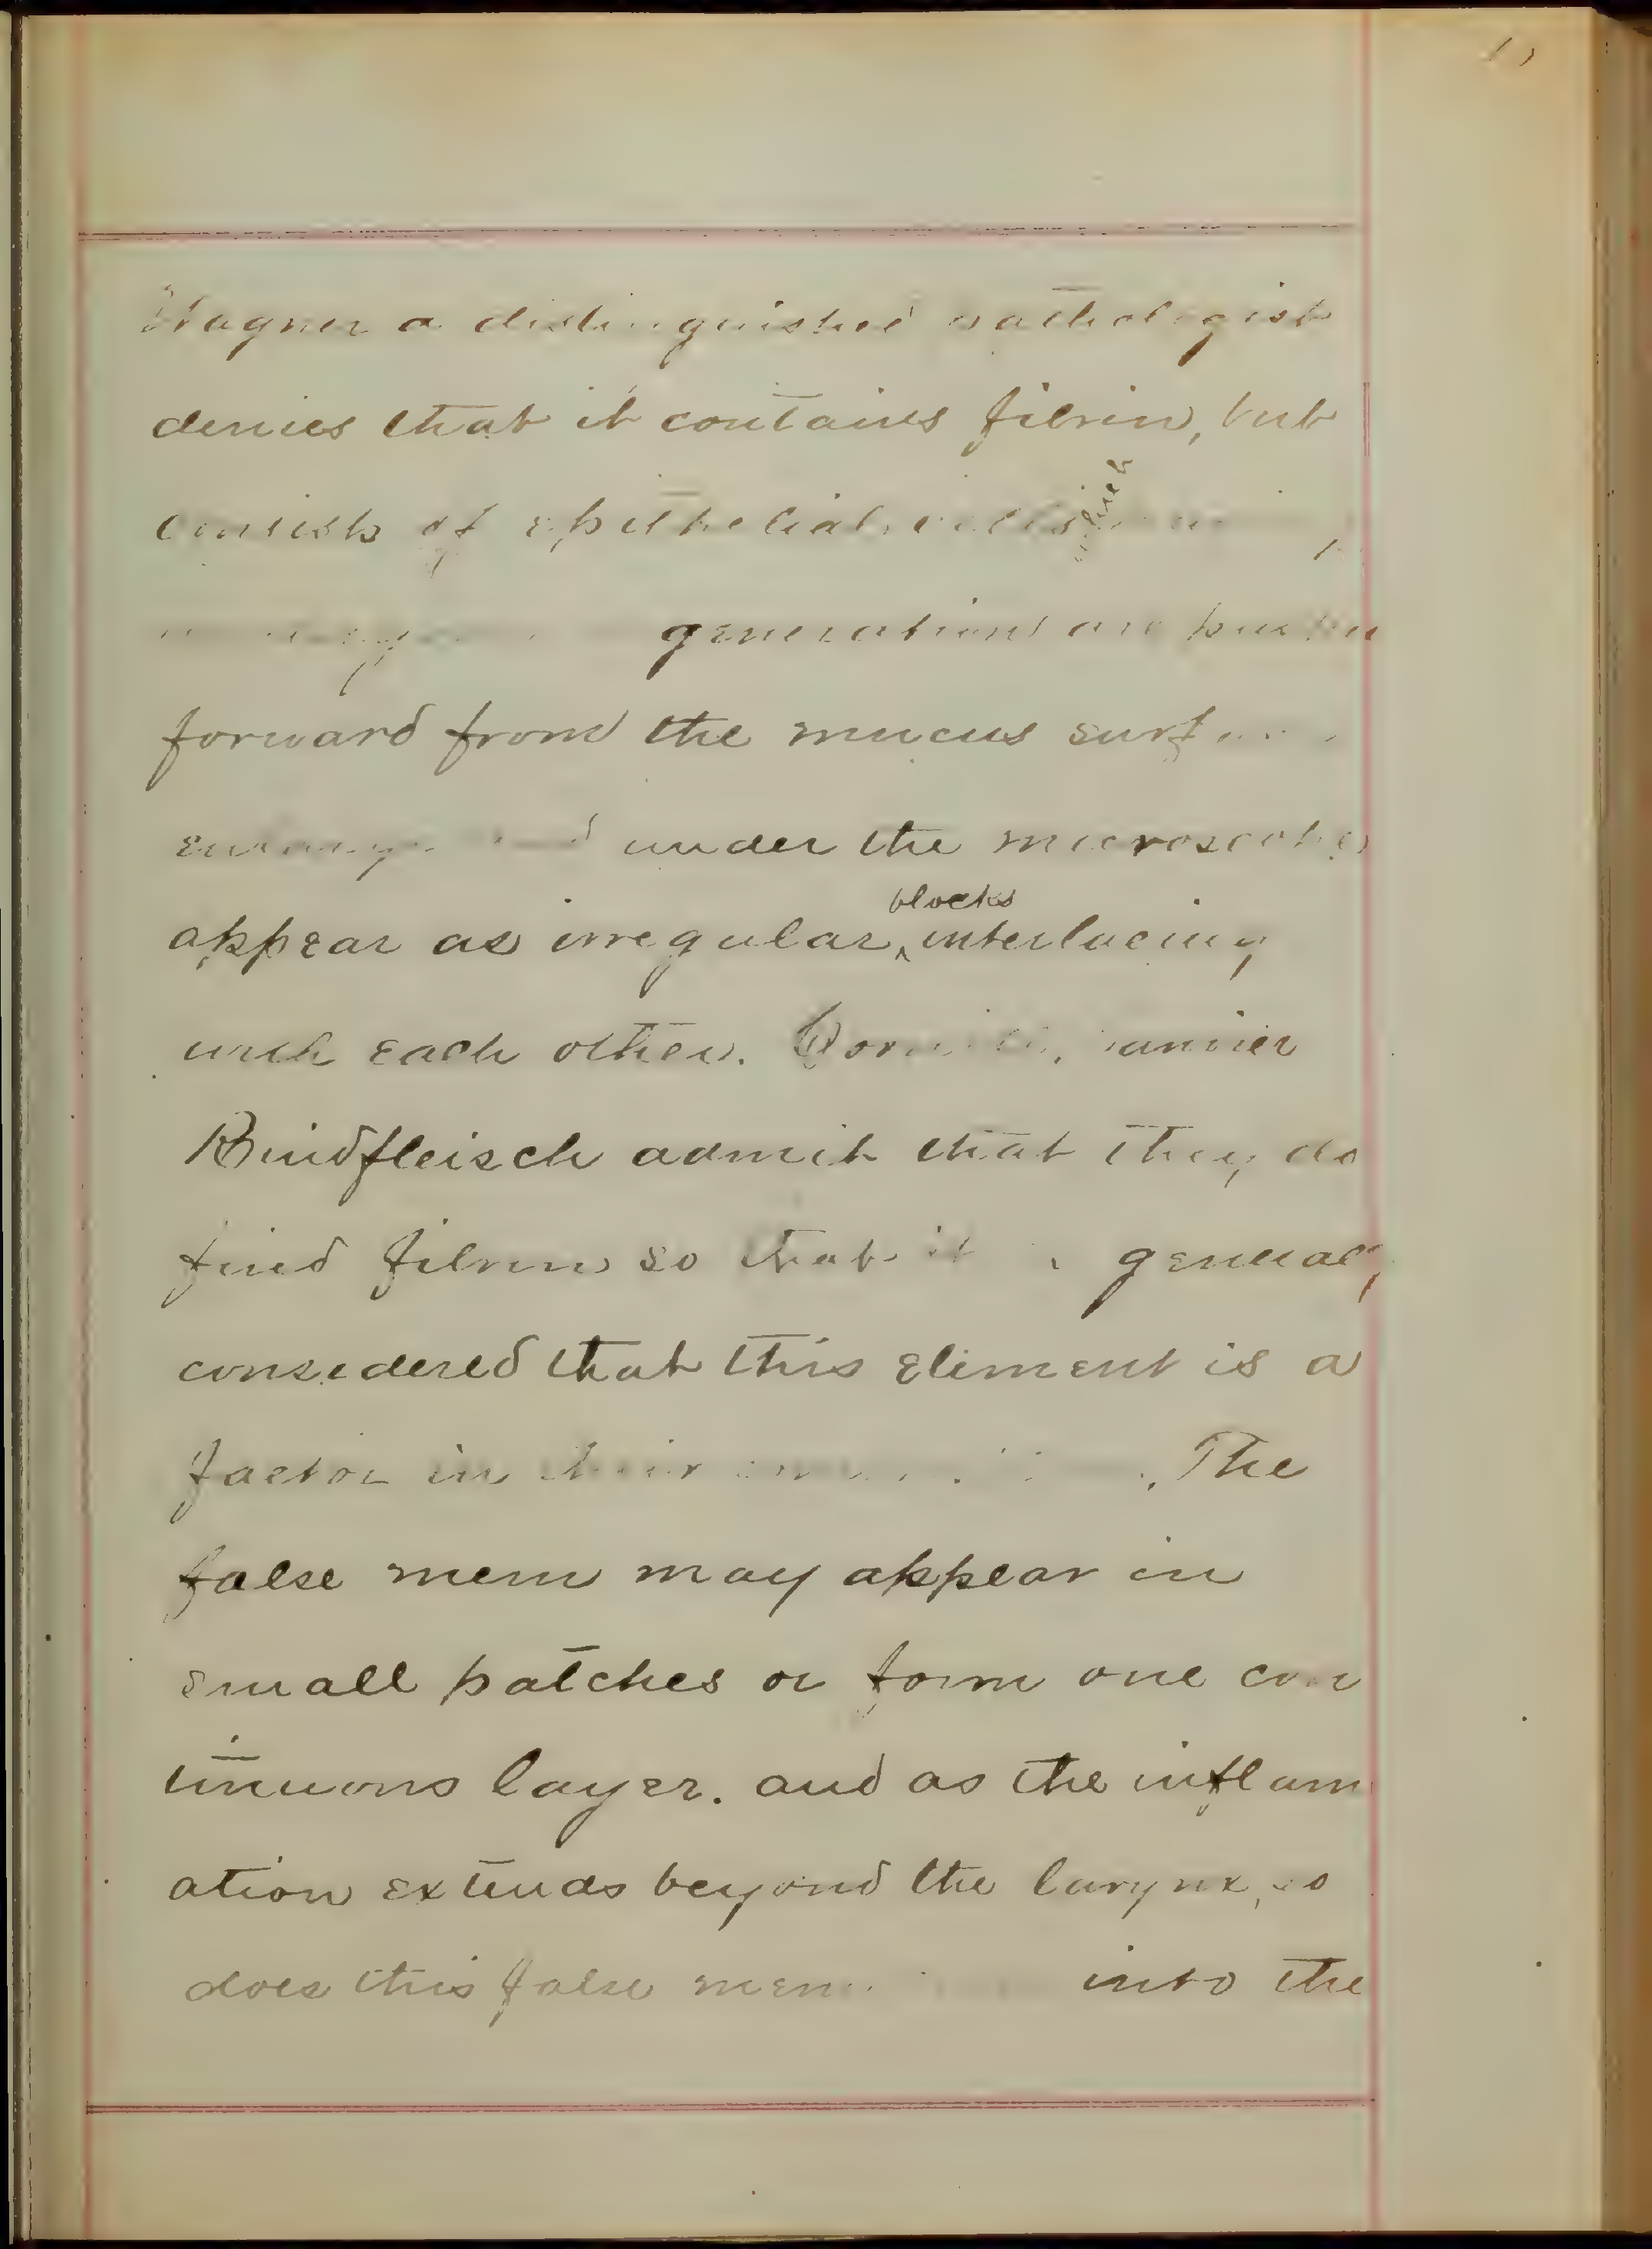 Wagner a distinguished pathologist
denies that it contains fibrin, but
consists of epithelial cells which
generations are pushed
forward from the mucus surface
under the microscope
appear as irregular blocks interlacing
with each other. Cornil, Ranvier
Rindfleisch admit that they do
find fibrin so that it general,
considered that this eliment is a
factor in their The
false mem may appear in
small patches or form one con
tinuous layer. and as the inflam
ation extends beyond the larynx, so
does this false mem into the